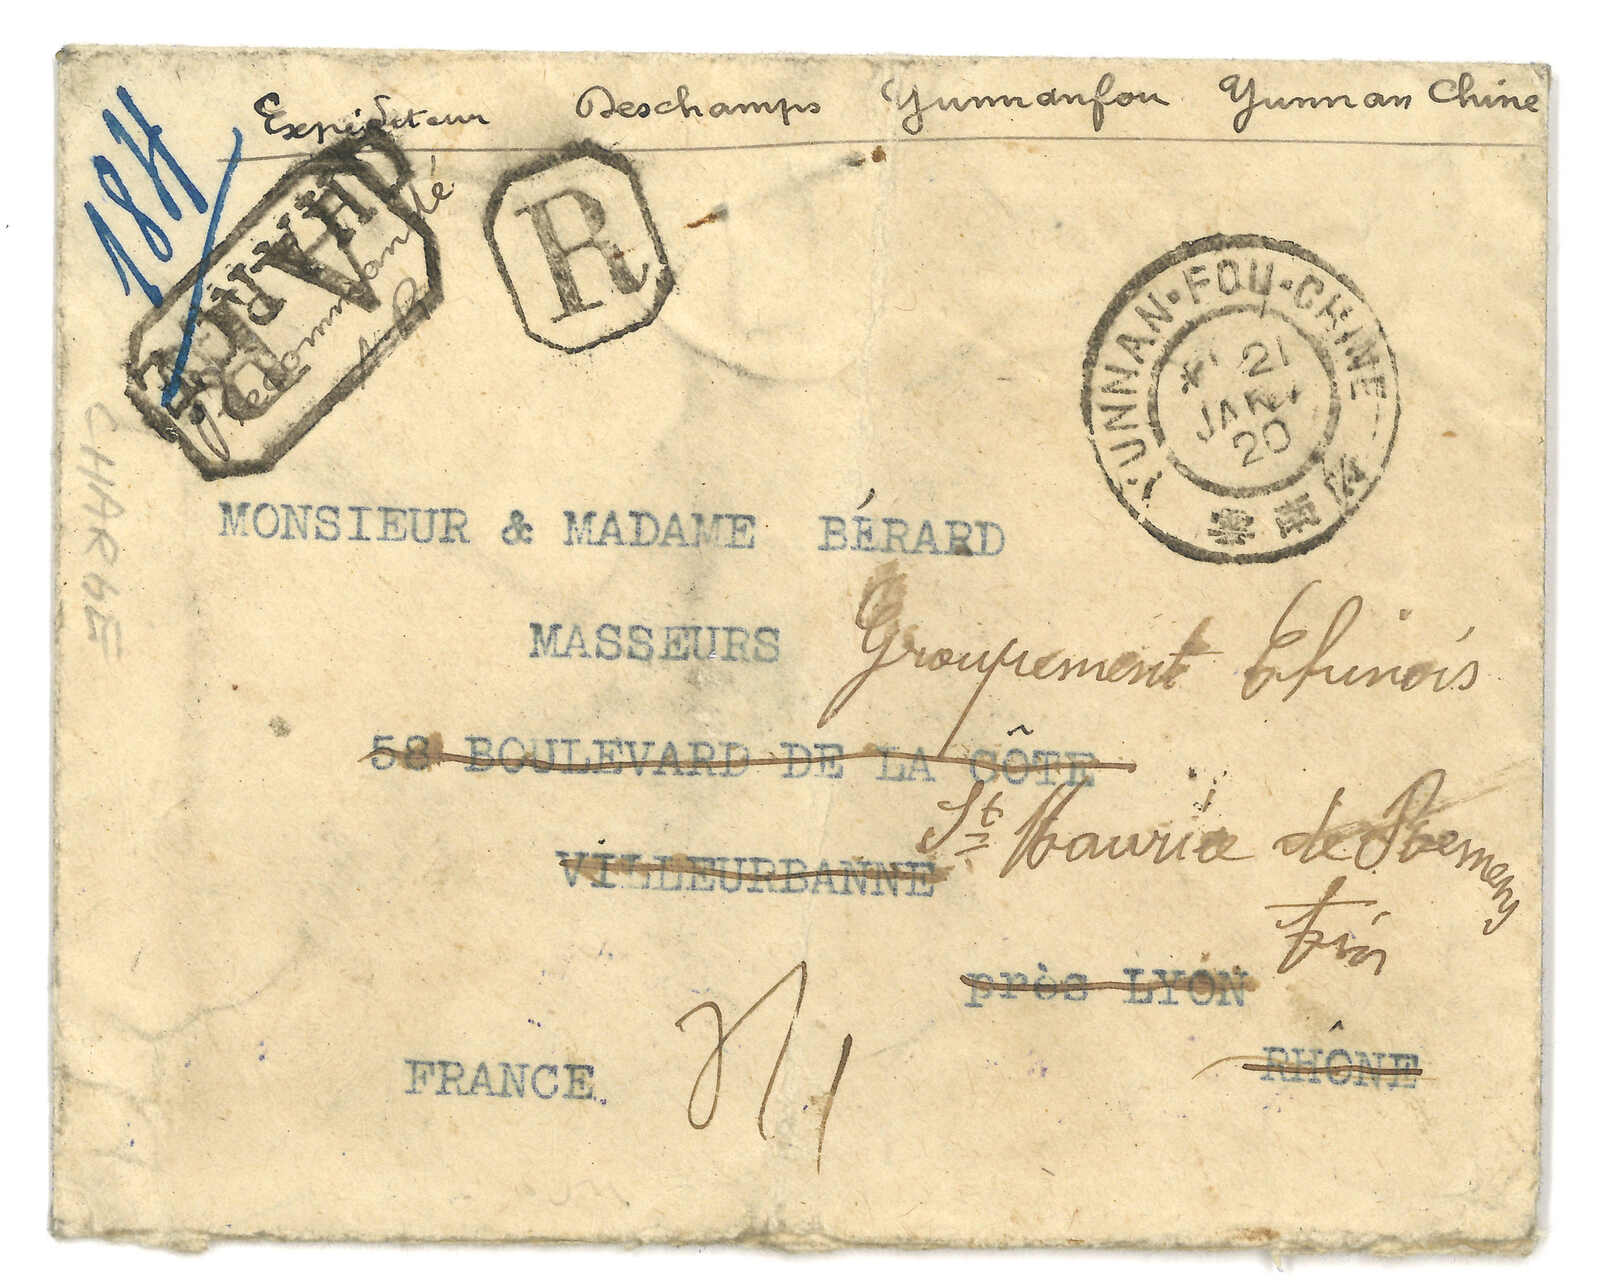 Expéditeur Deschamps Yunnanfou Yunnan Chine
184
CHARGÉ
AR
Recommandé
R
YUNNAN-FOU-CHINE
21
JANV
20
雲南府
CHARGE
MONSIEUR & MADAME BÉRARD
MASSEURS
Groupement Chinois
58 BOULEVARD DE LA CÔTE
St Maurice de Remens
VILLEURBANNE
Ain
près LYON
FRANCE.
RHÔNE